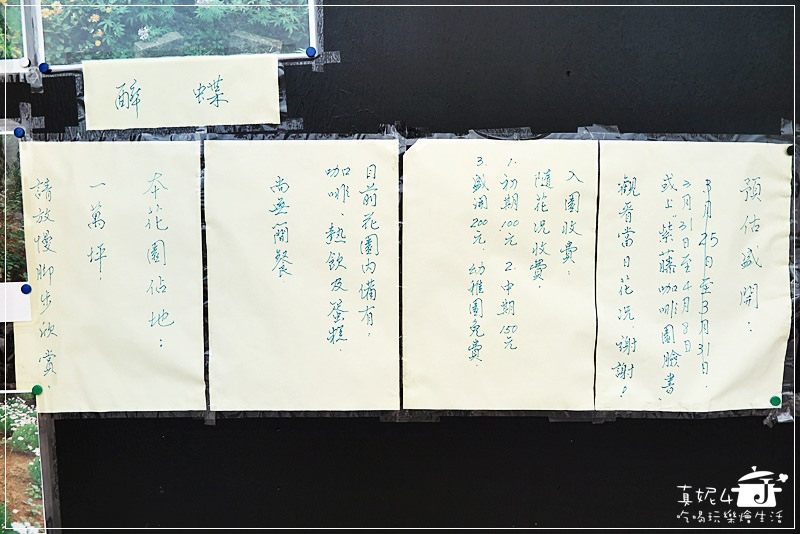 醉蝶
預估盛開：
3月25日至3月31日.
3月31日至4月8日
或上"紫藤咖啡園臉書"
觀看當日花況.謝謝！
入園收費：
隨花況收費.
1.初期100元 2.中期150元
3.盛開200元 幼稚園免費.
目前花園內備有,
咖啡、熱飲及蛋糕.
尚無簡餐
本花園佔地：
一萬坪.
請放慢脚步欣賞.
真妮4J
吃喝玩樂燴生活